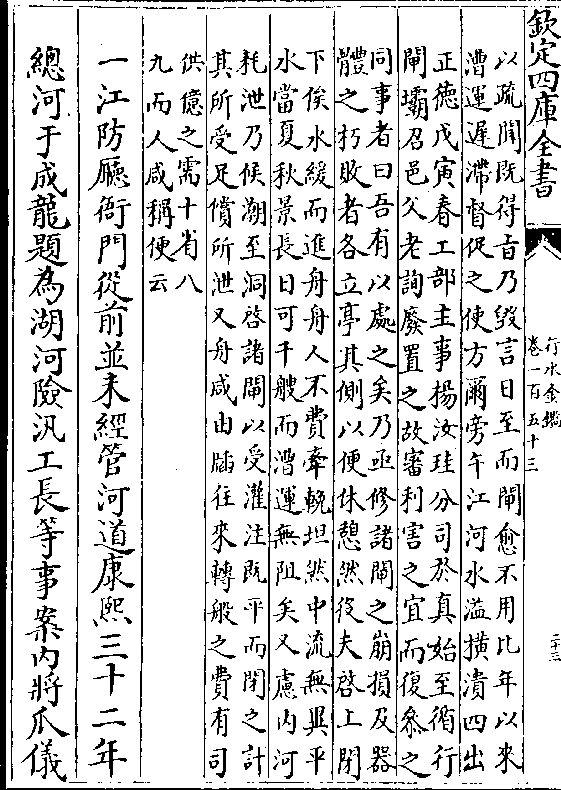 欽定四庫全書
行水金鑑
卷一百五十三
二十三
以疏聞既得旨乃毀言日至而閘愈不用比年以來
漕運遲滯督促之使方爾旁午江河水溢橫潰四出
正德戊寅春工部主事楊汝珪分司於真始至循行
閘壩召邑父老詢廢置之故審利害之宜而復參之
同事者曰吾有以處之矣乃亟修諸閘之崩損及器
體之朽敗者各立亭其側以便休憩然後夫啓上閉
下俟水緩而進舟舟人不費牽輓坦然中流無異平
水當夏秋景長日可千艘而漕運無阻矣又慮内河
耗泄乃候潮至洞啓諸閘以受灌注既平而閉之計
其所受足償所泄又舟咸由牐往來轉般之費有司
供億之需十省八
九而人咸稱便云
一江防廳衙門從前並未經管河道康熙三十二年
總河于成龍題為湖河險汛工長等事案内將瓜儀